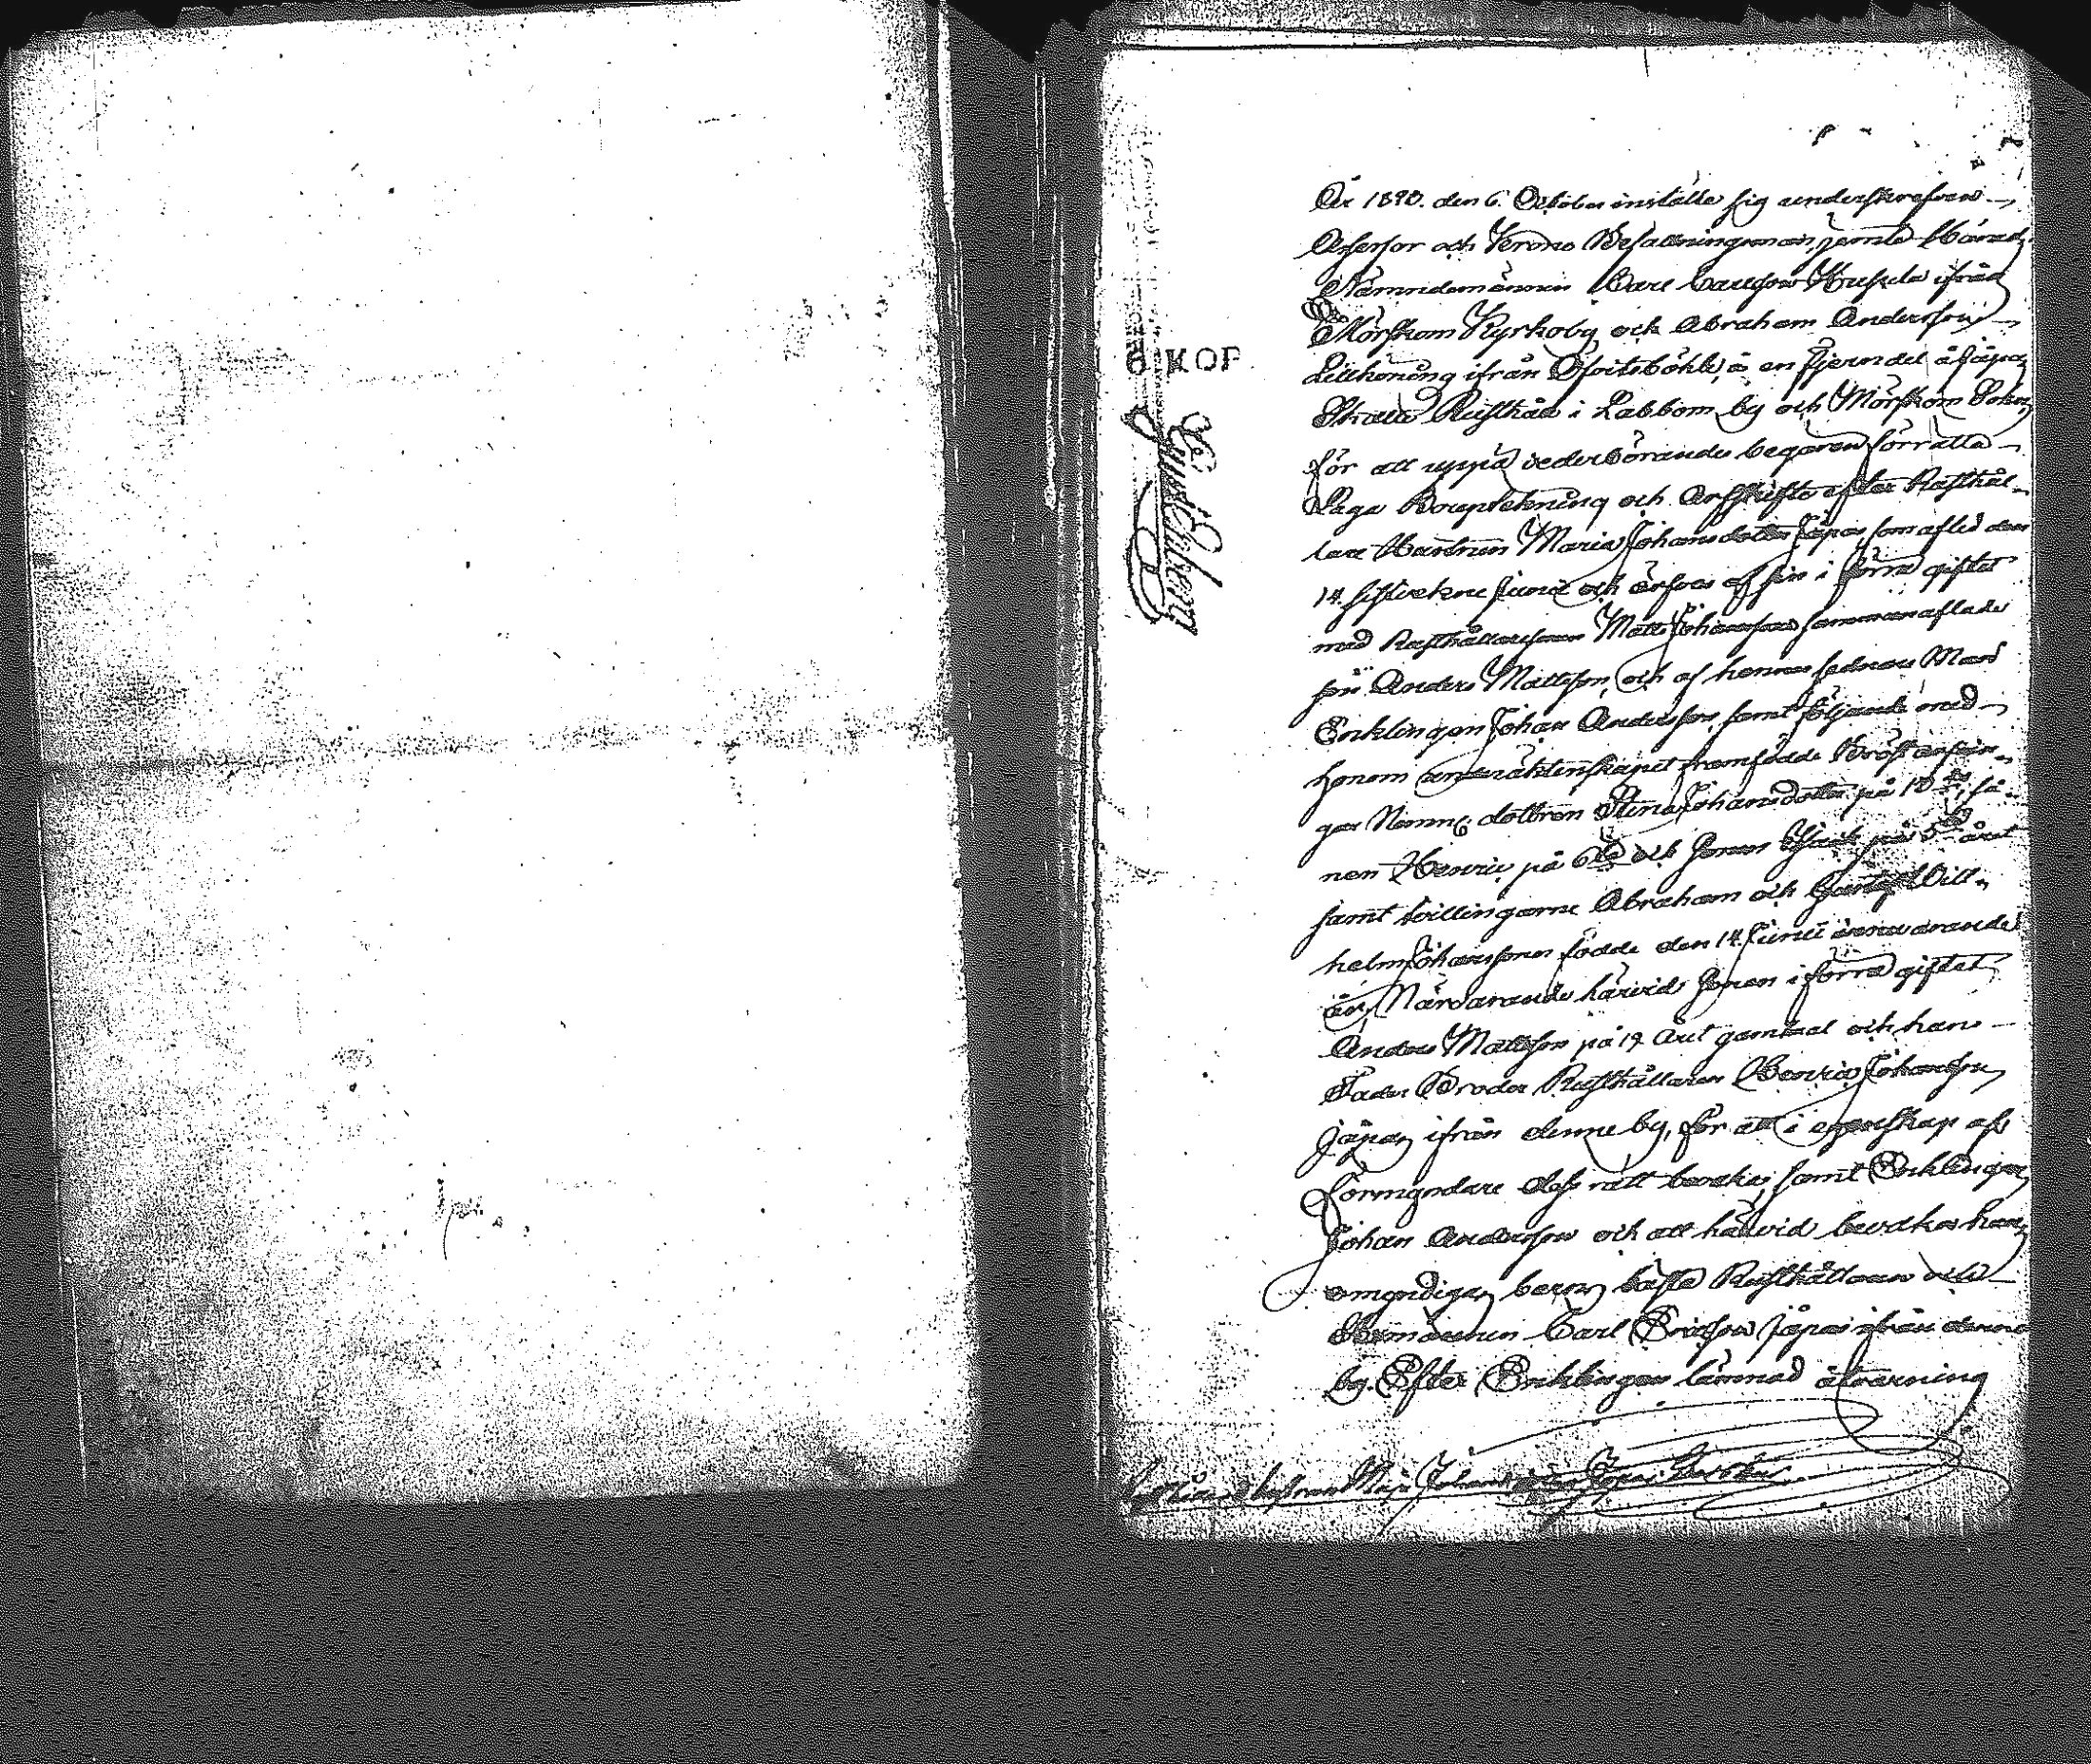 6 KOP.
År 1890. den 6. October instälte sig underskrefven
Assessor och Krono Befallningsman, jemte Härads
Nämndemännen Carl Carlsson Huskila ifrån
Mörskom Kyrkoby och Abraham Andersson
Lillhonång ifrån böhle, å en fjerndel å Jäpas
Skatte Rusthåll i Labbom by och Mörskom Sokn,
för att uppå vederbörandes begäran förrätta
Laga Bouptekning och Arfskifte efter Rusthål-
lare Hustrun Maria Johansdotter Jäpas, som afled den
14 sistvekne Junii och ärfves af sin i förra giftet
med Rusthållaresonen Matts Johansson sammanaflade
son Anders Mattsson, och af hennes sednare Man
Enklingen Johan Andersson, samt följande med
honom under äktenskapet framfödde Bröst arfvin-
gar Nemn: dottren Stina Johansdotter på 10de, så-
nen Henric på 6te och sonen på 5te året
samt tvillingarne Abraham och Gustaf Will-
helm Johanssöner födde den 14 Junii innevarande
år, Närvarande härvid sonen i förra giftet
Anders Mattsson på 19 året gammal och hans
Fader Broder Rusthållaren Henric Johansson
Jäpas ifrån denne by, för att i egenskap af
Förmyndare dess rätt bevaka, samt Enklingen
Johan Andersson och att härvid bevaka hans
omyndiga barns bästa Rusthållaren och
Carl Ericsson Jäpas ifrån denne
by. Efter Enklingen lämnad åtvarning
hustrun Maja Johansdotter Jäpas